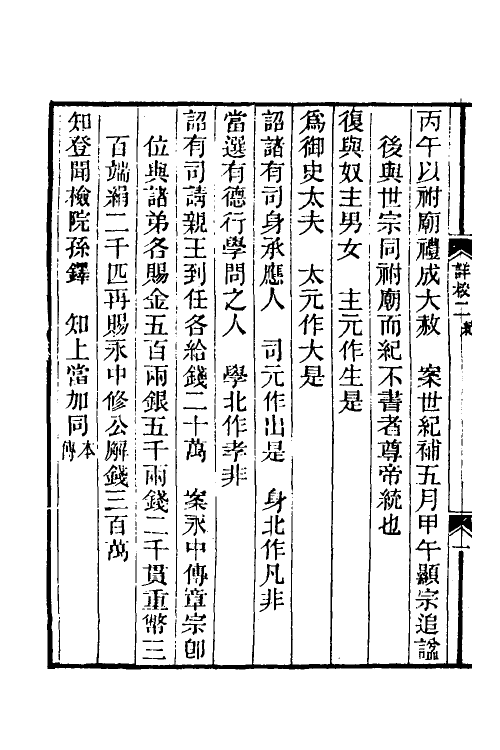 丙午以祔廟禮成大赦　案世紀補五月甲午顯宗追諡
後與世宗同祔廟而紀不書者尊帝統也
復與奴主男女　主元作生是
爲御史太夫　太元作大是
詔諸有司身承應人　司元作出是　身北作凡非
當選有德行學問之人　學北作孝非
詔有司請親王到任各給錢二十萬　案永中傳章宗卽
位與諸弟各賜金五百兩銀五千兩錢二千貫重幣三
百端絹二千匹再賜永中修公廨錢三百萬
知登聞檢院孫鐸　知上當加同本傳
詳校二
一